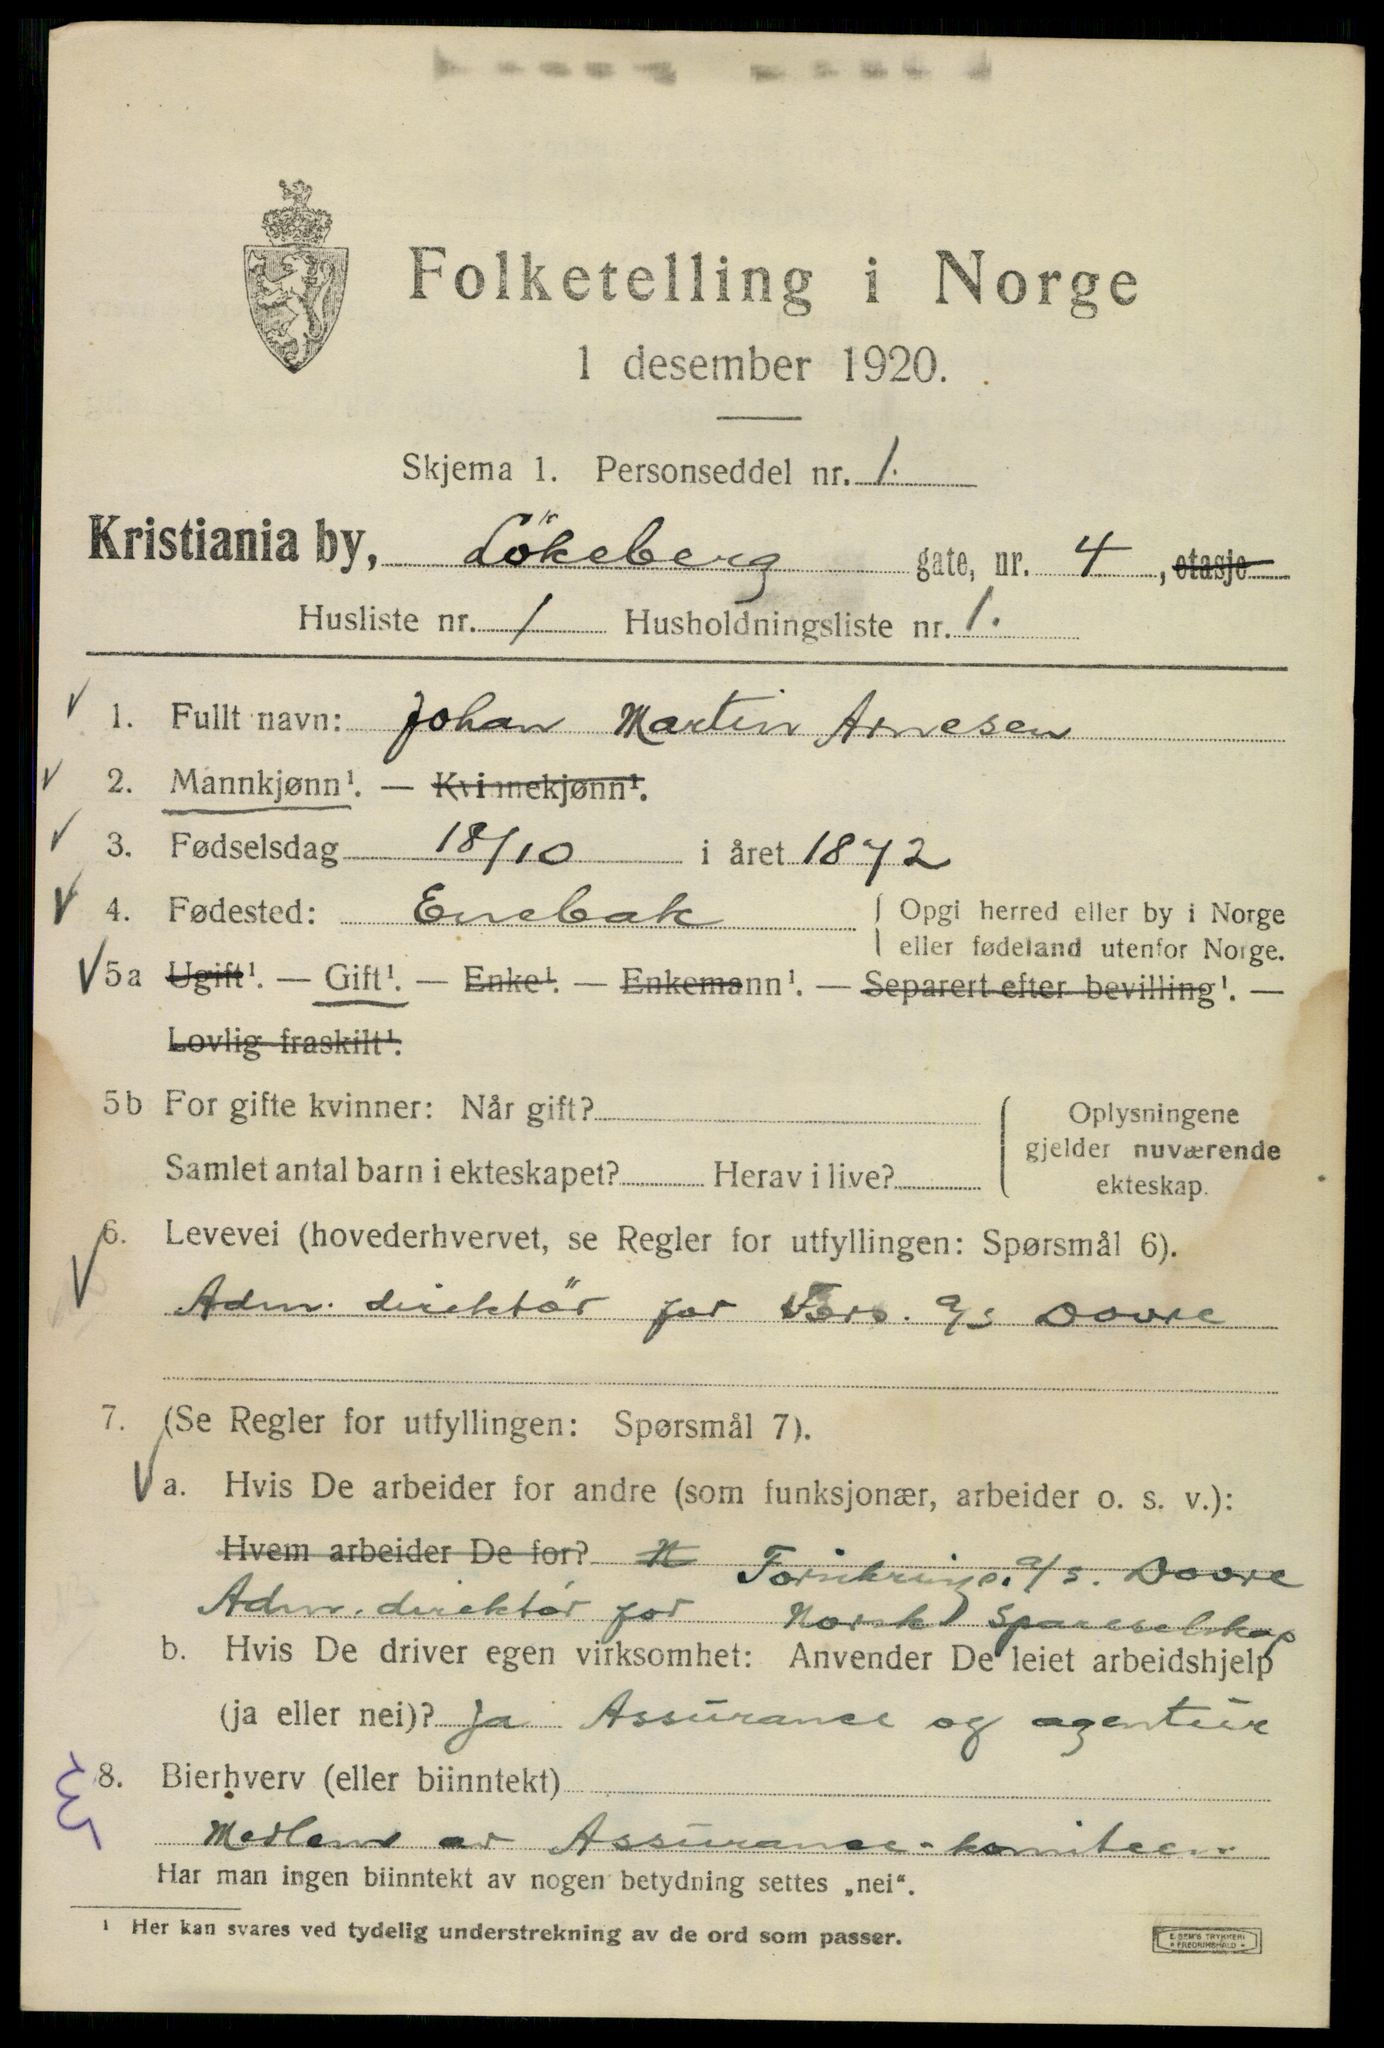 Folketelling i Norge
1 desember 1920.
Skjema 1. Personseddel nr. 1.
Kristiania by, Lökeberg gate, nr. 4, etasje
Husliste nr. 1 Husholdningsliste nr. 1.
1. Fullt navn: Johan Martin Arnesen
2. Mannkjønn¹. — Kvinnekjønn¹.
3. Fødselsdag 18/10 i året 1872
4. Fødested: Enebak { Opgi herred eller by i Norge
eller fødeland utenfor Norge.
5a Ugift¹. — Gift¹. — Enke¹. — Enkemann¹. — Separert efter bevilling¹. —
Lovlig fraskilt¹.
5b For gifte kvinner: Når gift?
Samlet antal barn i ekteskapet? Herav i live?
Oplysningene
gjelder nuværende
ekteskap.
6. Levevei (hovederhvervet, se Regler for utfyllingen: Spørsmål 6).
Adm. direktör for Fors. a/s Dovre
7. (Se Regler for utfyllingen: Spørsmål 7).
a. Hvis De arbeider for andre (som funksjonær, arbeider o. s. v.):
Hvem arbeider De for? Forsikrings. a/s. Dovre
Adm. direktör for Norsk Spareselskap
b. Hvis De driver egen virksomhet: Anvender De leiet arbeidshjelp
(ja eller nei)? Ja Assurance og agentur
8. Bierhverv (eller biinntekt)
Medlem av Assurance-komiteen
Har man ingen biinntekt av nogen betydning settes „nei“.
¹ Her kan svares ved tydelig understrekning av de ord som passer.
E. SEM'S TRYKKERI
• FREDRIKSHALD •